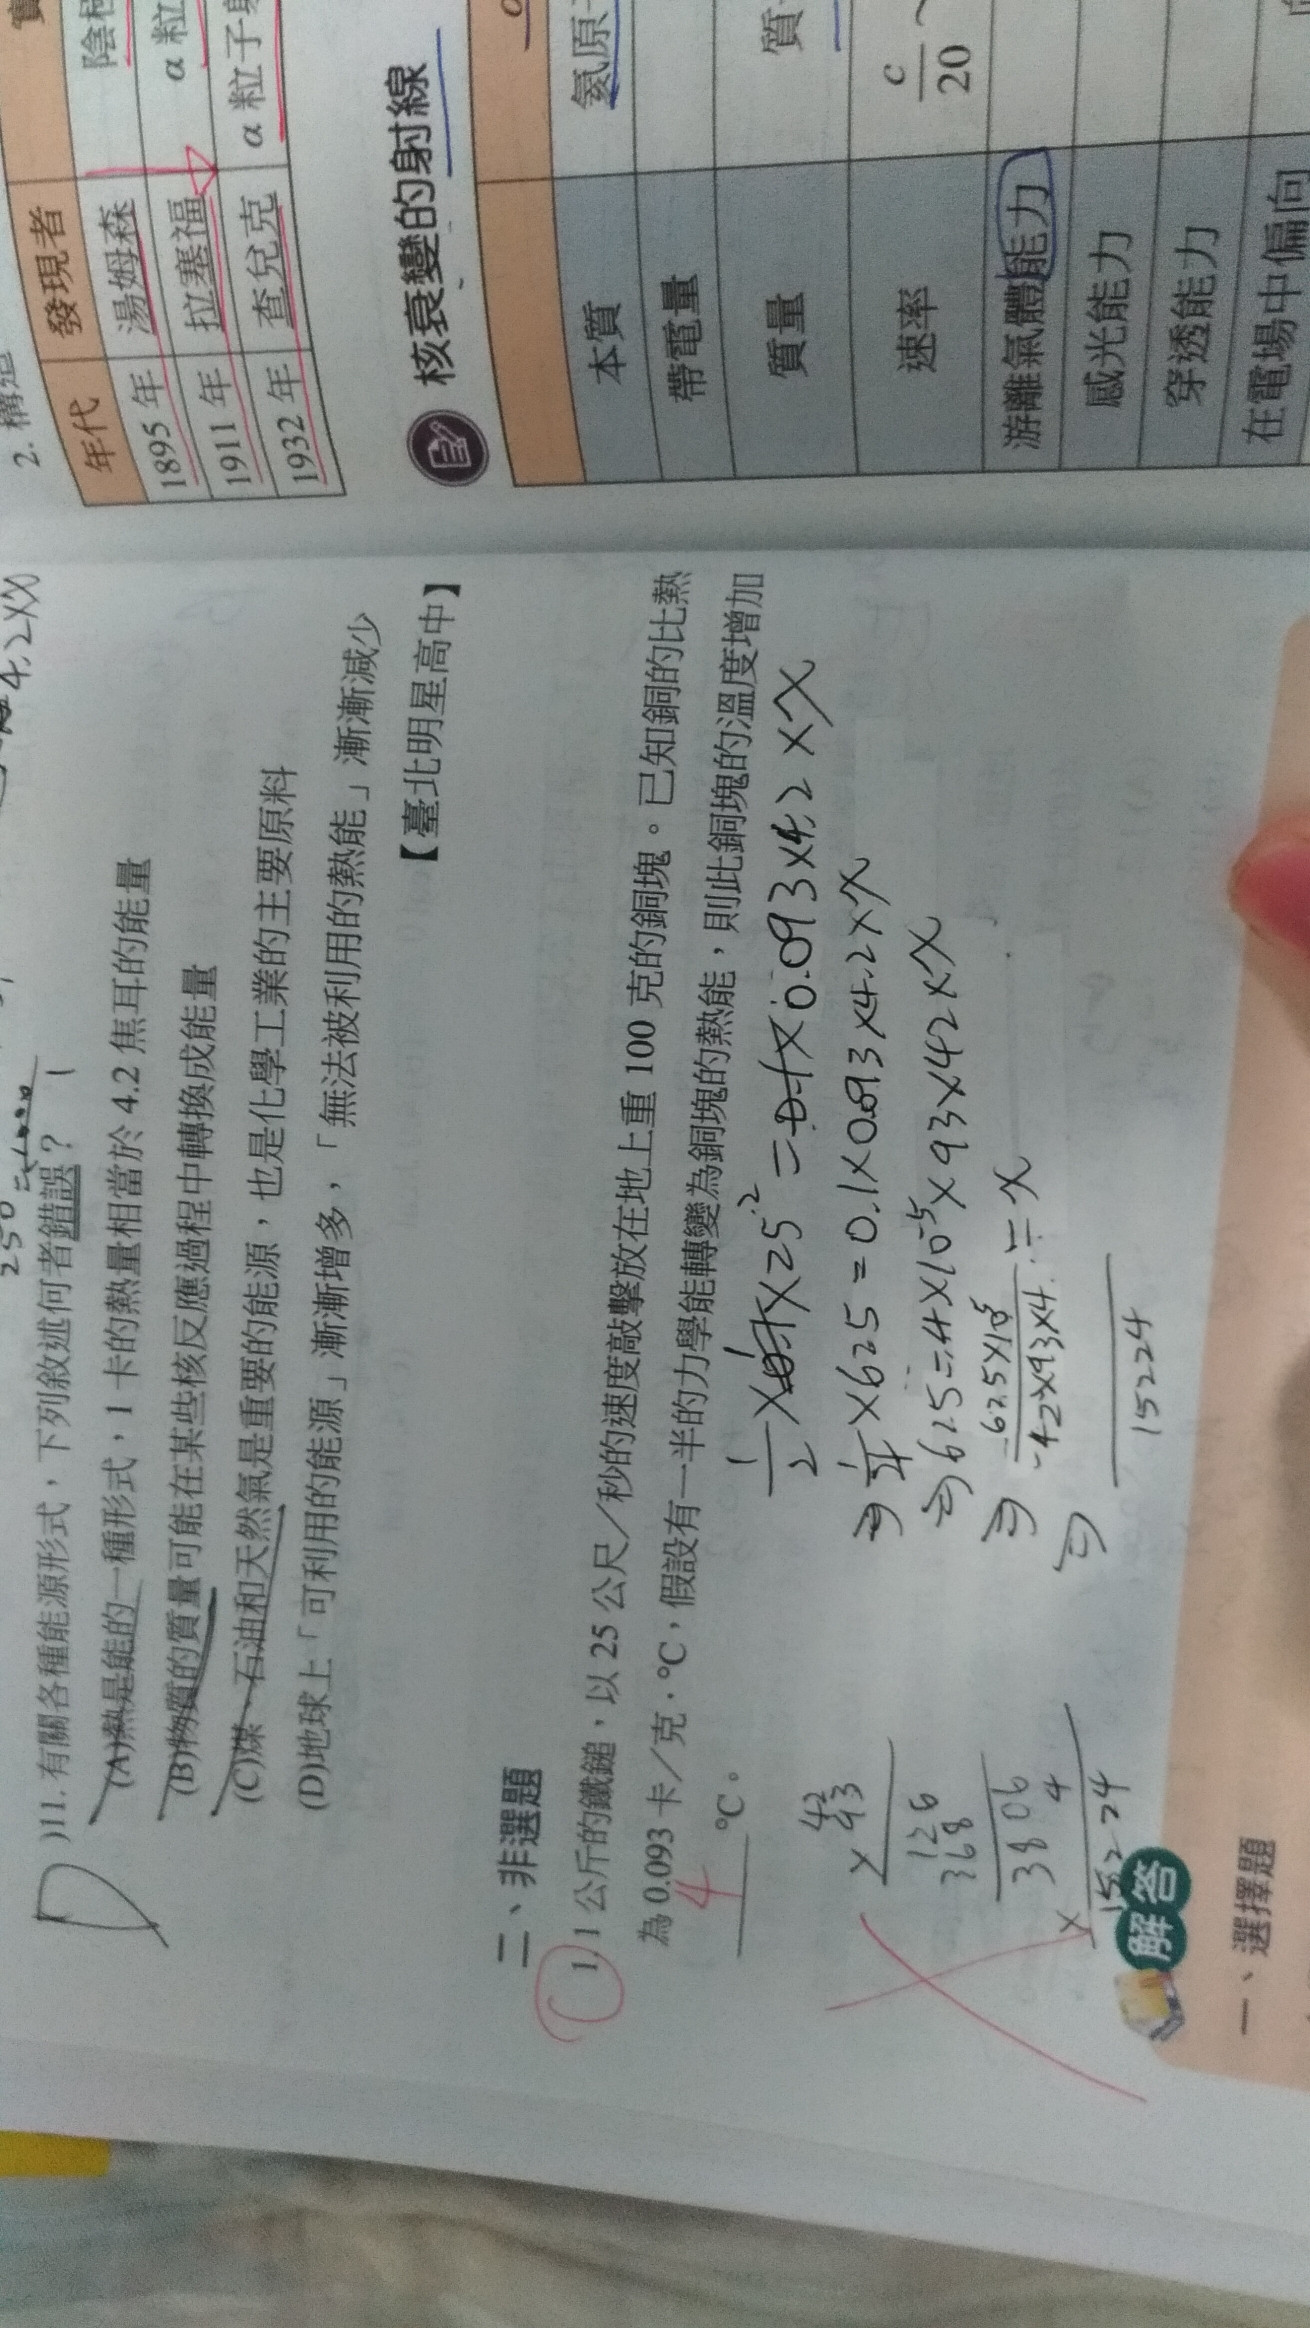 250
4.2×X
D
)11. 有關各種能源形式，下列敘述何者錯誤？
(A)熱是能的一種形式，1 卡的熱量相當於 4.2 焦耳的能量
(B)物質的質量可能在某些核反應過程中轉換成能量
(C)煤、石油和天然氣是重要的能源，也是化學工業的主要原料
(D)地球上「可利用的能源」漸漸增多，「無法被利用的熱能」漸漸減少
【臺北明星高中】
二、非選題
1. 1 公斤的鐵鎚，以 25 公尺／秒的速度敲擊放在地上重 100 克的銅塊。已知銅的比熱
為 0.093 卡／克．℃，假設有一半的力學能轉變為銅塊的熱能，則此銅塊的溫度增加
4 ℃。
×25² = ×0.093×4.2×X
×625=0.1×0.093×4.2×X
⇒625=4×10⁻⁵×93×42×X
⇒ 62.5×10⁵
42×93×4 = X
⇒
15224
42
×93
126
368
3806
× 4
15224
解答
一、選擇題
2. 構造
年代 發現者
1895 年 湯姆森 陰極
1911 年 拉塞福 α 粒
1932 年 查兌克 α 粒子
核衰變的射線
本質 氦原
帶電量
質量 質
速率 c/20 ~
游離氣體能力
感光能力
穿透能力
在電場中偏向